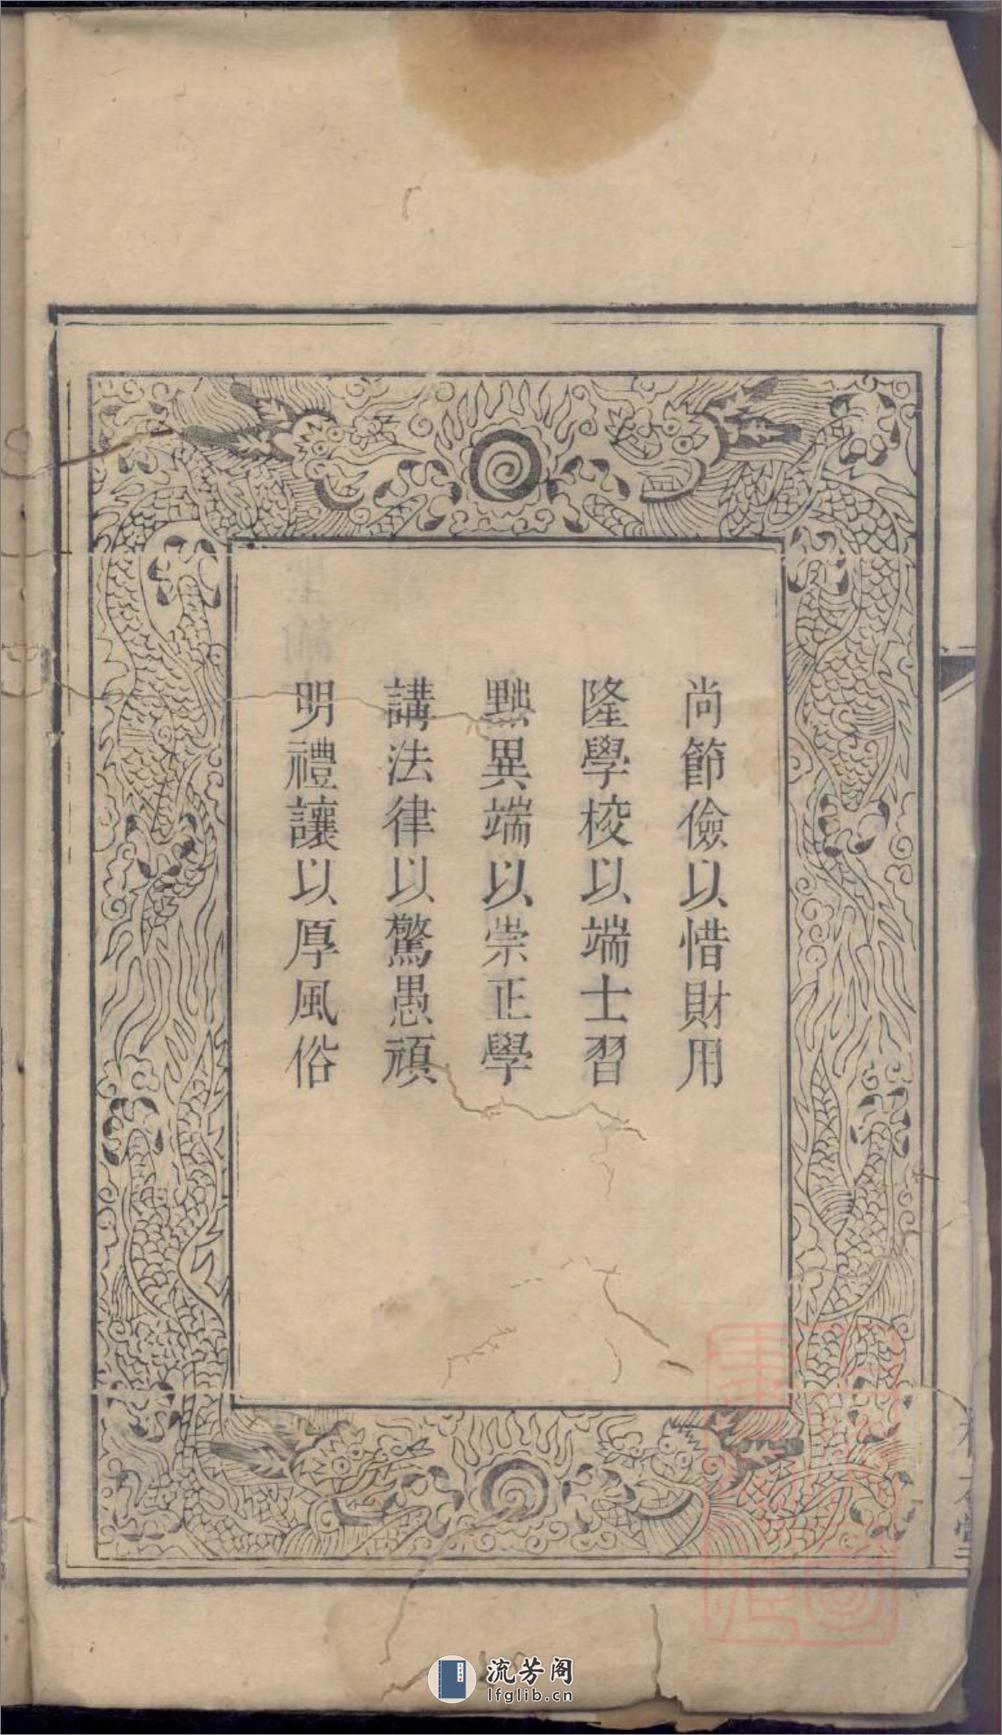 尚節儉以惜財用
隆學校以端士習
黜異端以崇正學
講法律以驚愚頑
明禮讓以厚風俗
流芳阁
lfglib.cn